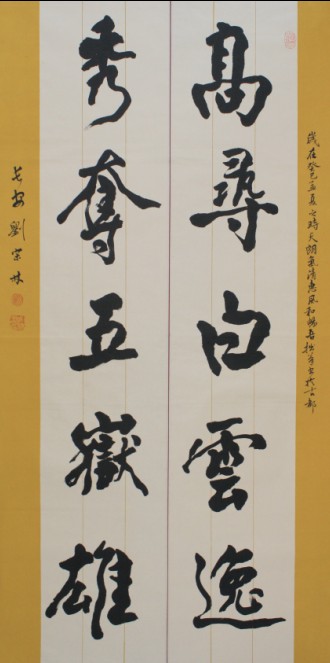 歲在癸巳孟夏之時天朗氣清惠風和暢吾拙筆書於古都
高尋白雲逸
秀奪五嶽雄
長安劉宗林